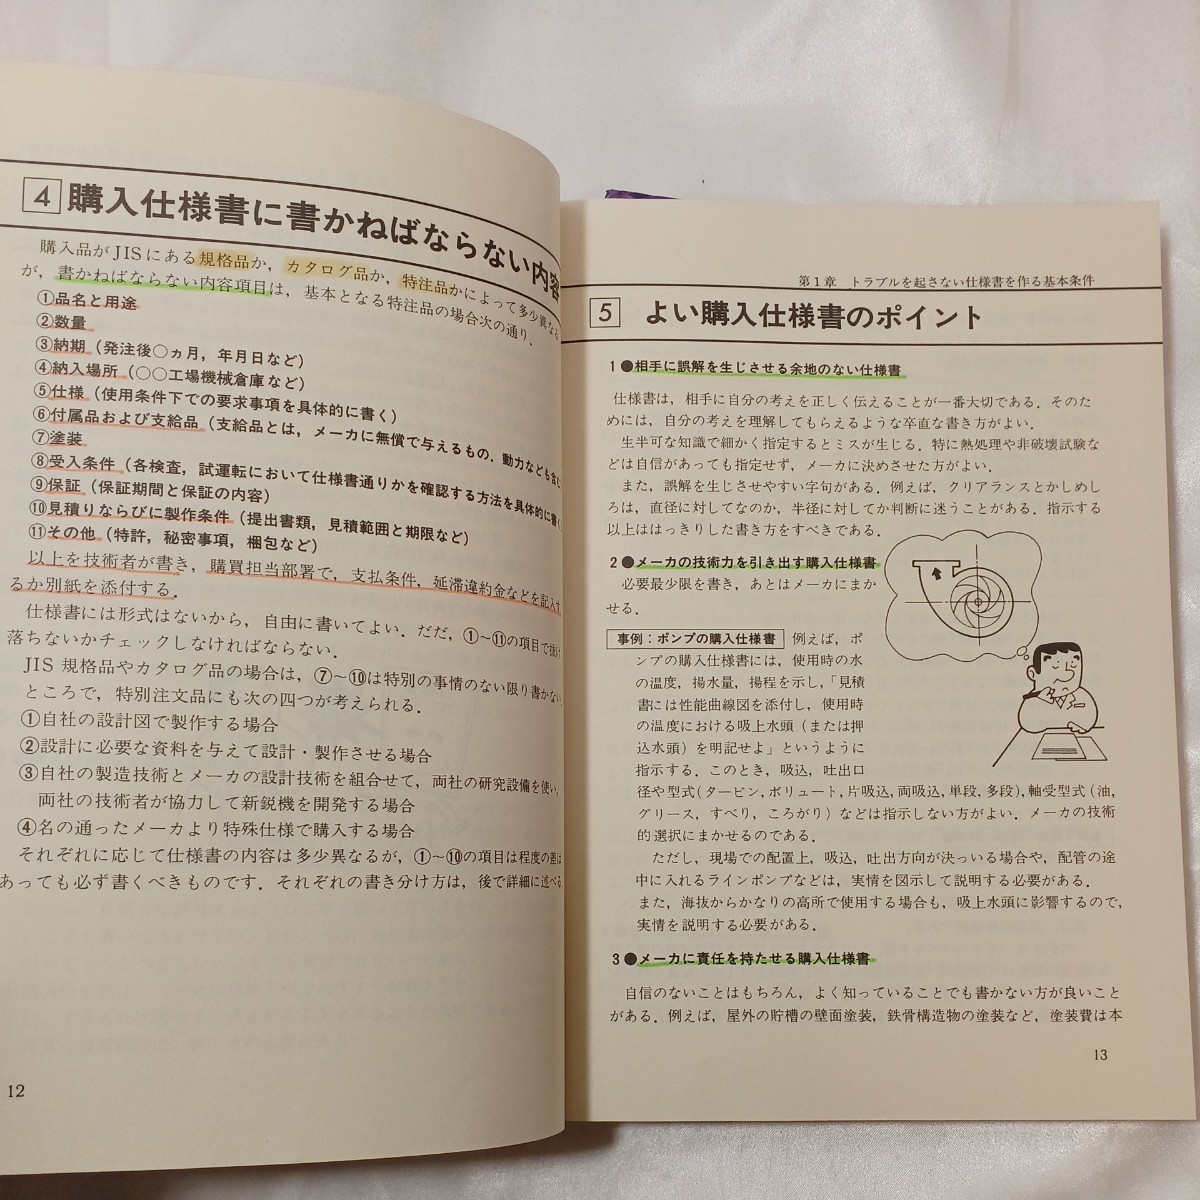 4 購入仕様書に書かねばならない内容
購入品がJISにある規格品か，カタログ品か，特注品かによって多少異なる
が，書かねばならない内容項目は，基本となる特注品の場合次の通り．
①品名と用途
②数量
③納期（発注後○ヵ月，年月日など）
④納入場所（○○工場機械倉庫など）
⑤仕様（使用条件下での要求事項を具体的に書く）
⑥付属品および支給品（支給品とは，メーカに無償で与えるもの．動力なども含む
⑦塗装
⑧受入条件（各検査，試運転において仕様書通りかを確認する方法を具体的に書く
⑨保証（保証期間と保証の内容）
⑩見積りならびに製作条件（提出書類，見積範囲と期限など）
⑪その他（特許，秘密事項，梱包など）
以上を技術者が書き，購買担当部署で，支払条件，延滞違約金などを記入す
るか別紙を添付する．
仕様書には形式はないから，自由に書いてよい．だだ，①〜⑪の項目で抜け
落ちないかチェックしなければならない．
JIS規格品やカタログ品の場合は，⑦〜⑩は特別の事情のない限り書かない．
ところで，特別注文品にも次の四つが考えられる．
①自社の設計図で製作する場合
②設計に必要な資料を与えて設計・製作させる場合
③自社の製造技術とメーカの設計技術を組合せて，両社の研究設備を使い，
両社の技術者が協力して新鋭機を開発する場合
④名の通ったメーカより特殊仕様で購入する場合
それぞれに応じて仕様書の内容は多少異なるが，①〜⑩の項目は程度の差は
あっても必ず書くべきものです．それぞれの書き分け方は，後で詳細に述べる．
12
第1章　トラブルを起さない仕様書を作る基本条件
5 よい購入仕様書のポイント
1●相手に誤解を生じさせる余地のない仕様書
仕様書は，相手に自分の考えを正しく伝えることが一番大切である．そのた
めには，自分の考えを理解してもらえるような卒直な書き方がよい．
生半可な知識で細かく指定するとミスが生じる．特に熱処理や非破壊試験な
どは自信があっても指定せず，メーカに決めさせた方がよい．
また，誤解を生じさせやすい字句がある．例えば，クリアランスとかしめし
ろは，直径に対してなのか，半径に対してか判断に迷うことがある．指示する
以上ははっきりした書き方をすべきである．
2●メーカの技術力を引き出す購入仕様書
必要最少限を書き，あとはメーカにまか
せる．
事例：ポンプの購入仕様書　例えば，ポ
ンプの購入仕様書には，使用時の水
の温度，揚水量，揚程を示し，「見積
書には性能曲線図を添付し，使用時
の温度における吸上水頭（または押
込水頭）を明記せよ」というように
指示する．このとき，吸込，吐出口
径や型式（タービン，ボリュート，片吸込，両吸込，単段，多段），軸受型式（油，
グリース，すべり，ころがり）などは指示しない方がよい．メーカの技術
的選択にまかせるのである．
ただし，現場での配置上，吸込，吐出方向が決っいる場合や，配管の途
中に入れるラインポンプなどは，実情を図示して説明する必要がある．
また，海抜からかなりの高所で使用する場合も，吸上水頭に影響するので，
実情を説明する必要がある．
3●メーカに責任を持たせる購入仕様書
自信のないことはもちろん，よく知っていることでも書かない方が良いこと
がある．例えば，屋外の貯槽の壁面塗装，鉄骨構造物の塗装など，塗装費は本
13